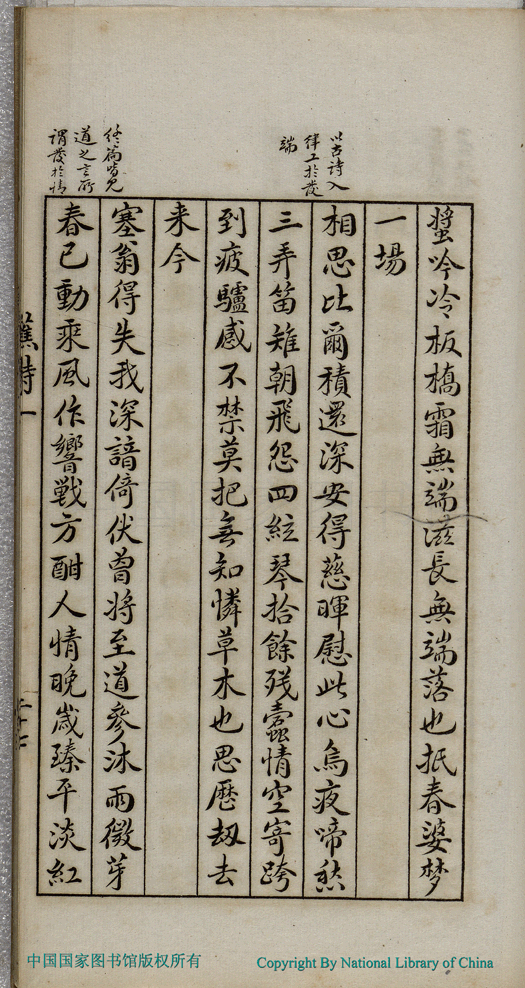 螿吟冷板橋霜無端滋長無端落也抵春婆梦
一場
以古诗入
律工於發
端
相思比爾積還深安得慈暉慰此心烏夜啼愁
三弄笛雉朝飛怨四絃琴拾餘残蠹情空寄跨
到疲驢感不禁莫把無知憐草木也思歷刼去
来今
塞翁得失我深諳倚伏曾将至道參沐雨微芽
終篇皆見
道之言所
謂發於情
春已動乘風作響戰方酣人情晚歲臻平淡紅
蕉詩一
二十七
中国国家图书馆版权所有
Copyright By National Library of China